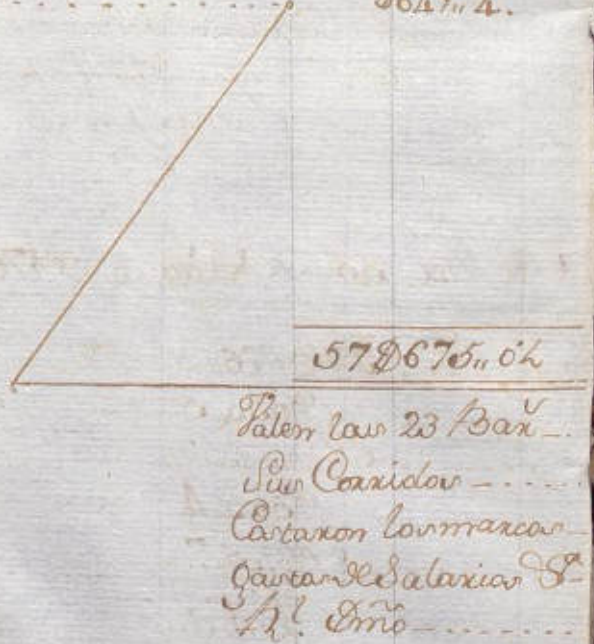 57D675,, 02
Valen las 23 Barˢ
Sus Corridos
Costaron los marcos
gastos de Salarios &ª
Rˡ Dmõ